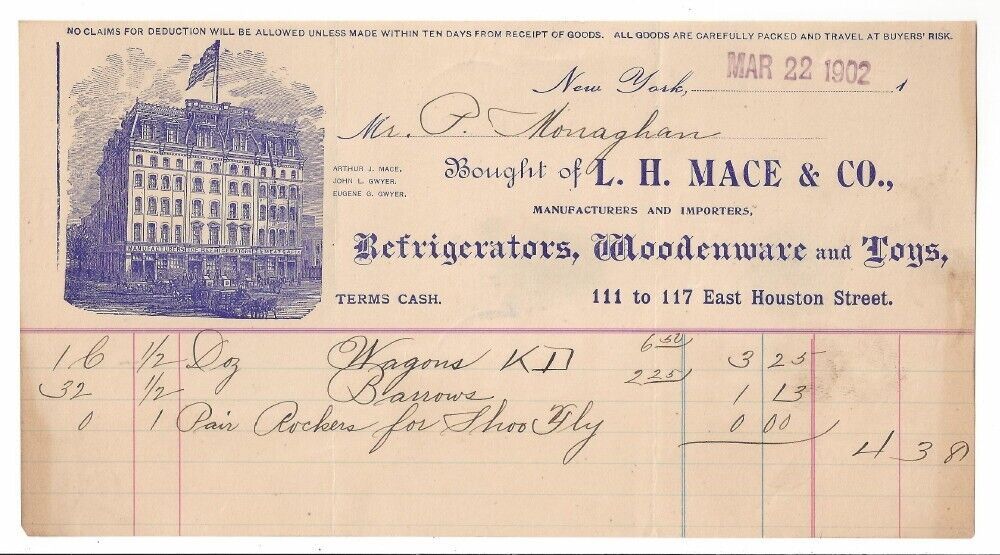 NO CLAIMS FOR DEDUCTION WILL BE ALLOWED UNLESS MADE WITHIN TEN DAYS FROM RECEIPT OF GOODS. ALL GOODS ARE CAREFULLY PACKED AND TRAVEL AT BUYERS' RISK.
New York, MAR 22 1902 1
Mr. P. Monaghan
ARTHUR J. MACE,
JOHN L. GWYER,
EUGENE G. GWYER.
Bought of L. H. MACE & CO.,
MANUFACTURERS AND IMPORTERS,
Refrigerators, Woodenware and Toys,
TERMS CASH. 111 to 117 East Houston Street.
MANUFACTURERS OF REFRIGERATORS
1C 1/2 Doz Wagons KD 6 50 3 25
32 1/2 Barrows 2 25 1 13
0 1 Pair Rockers for Shoo Fly 0 00
4 38